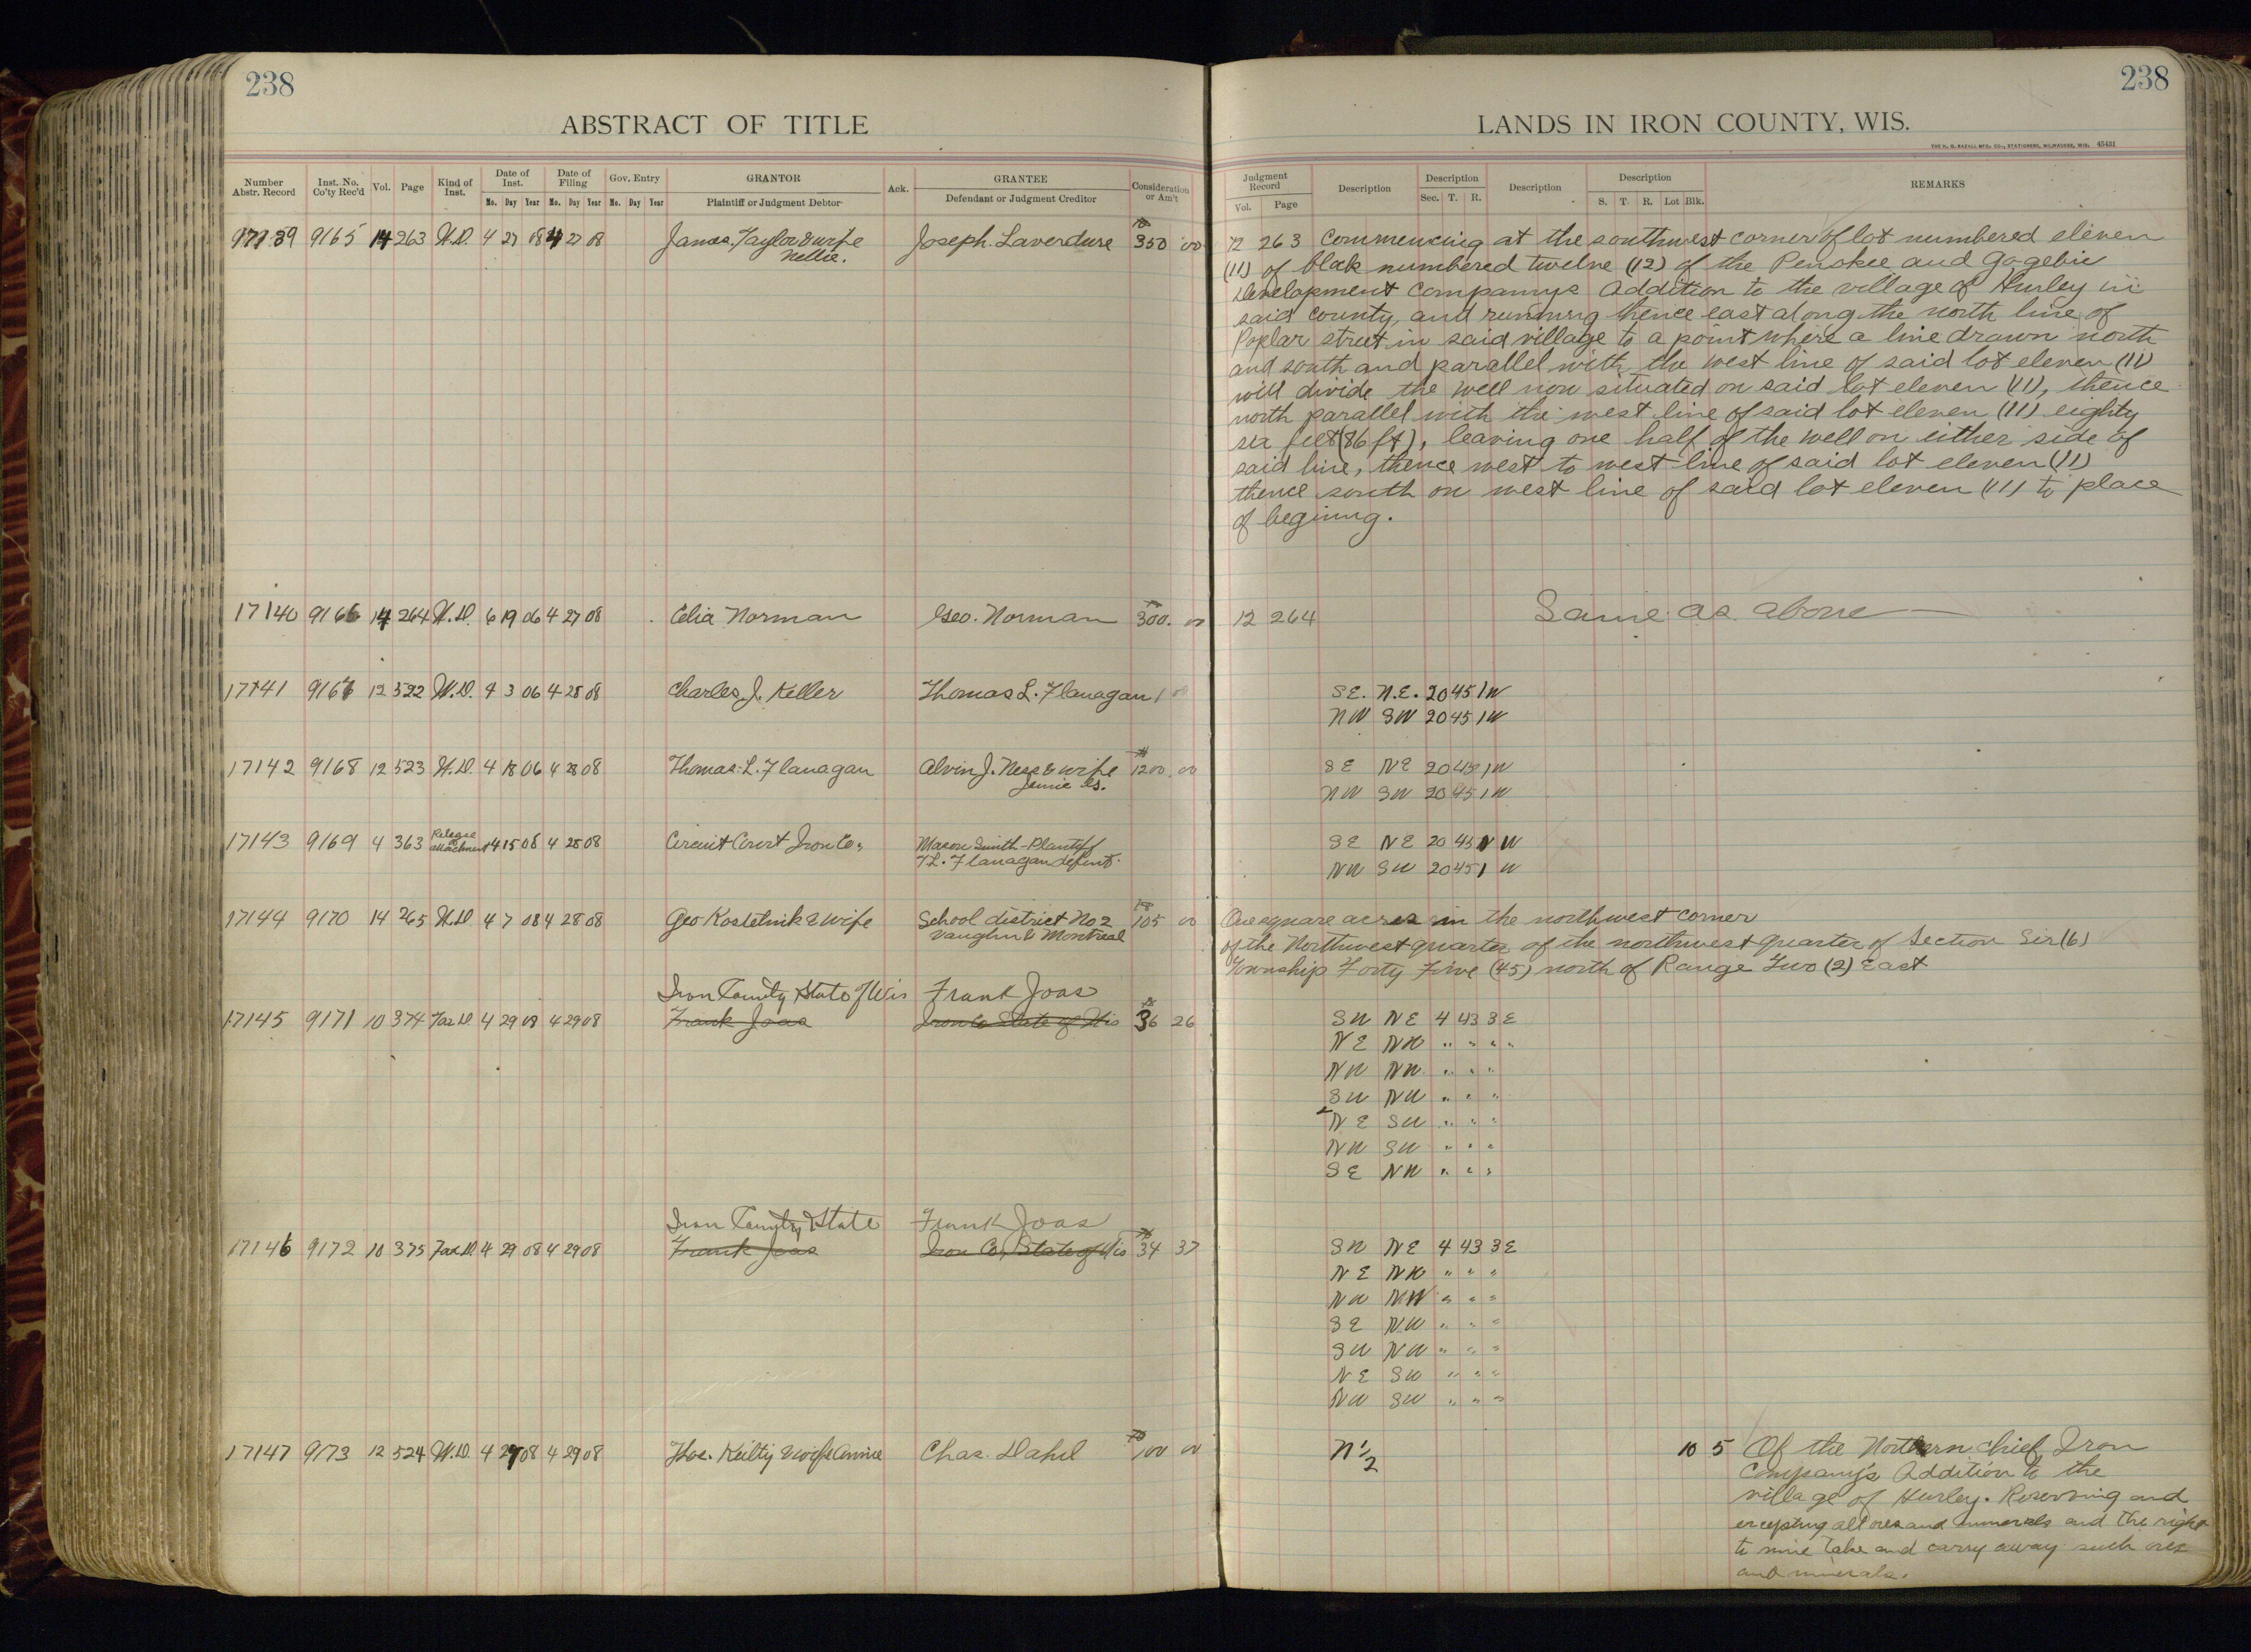 238
238
ABSTRACT OF TITLE
LANDS IN IRON COUNTY, WIS.
THE H. G. RAZALL MFG. CO., STATIONERS, MILWAUKEE, WIS. 45431
Number Abstr. Record Inst. No. Co'ty Rec'd Vol. Page Kind of Inst. Date of Inst. Date of Filing Gov. Entry GRANTOR Ack. GRANTEE Consideration or Am't
Mo. Day Year Mo. Day Year Mo. Day Year Plaintiff or Judgment Debtor Defendant or Judgment Creditor
Judgment Record Description Description Description Description REMARKS
Vol. Page Sec. T. R. S. T. R. Lot Blk.
17139 9165 14 263 W.D. 4 27 08 4 27 08 James Taylor & wife Joseph Laverdure 350 00
Nellie.
12 263 Commencing at the southwest corner of lot numbered eleven
(11) of block numbered twelve (12) of the Penokee and Gogebic
Development Companys Addition to the village of Hurley in
said county, and running thence east along the north line of
Poplar street in said village to a point where a line drawn north
and south and parallel with the west line of said lot eleven (11)
will divide the well now situated on said lot eleven (11), thence
north parallel with the west line of said lot eleven (11) eighty
six feet (86 ft), leaving one half of the well on either side of
said line, thence west to west line of said lot eleven (11)
thence south on west line of said lot eleven (11) to place
of begining.
17140 9166 14 264 W.D. 6 19 06 4 27 08 Celia Norman Geo. Norman 300. 00 12 264 Same as above
17141 9167 12 522 W.D. 4 3 06 4 28 08 Charles J. Keller Thomas L. Flanagan 1 00 SE. N.E. 20 45 1W
NW SW 20 45 1W
17142 9168 12 523 W.D. 4 18 06 4 28 08 Thomas L. Flanagan Alvin J. & wife 1200. 00 SE NE 20 45 1W
Jennie NW SW 20 45 1W
17143 9169 4 363 Release of attachment 4 15 08 4 28 08 Circuit Court Iron Co. Mason Smith-Plantiff SE NE 20 45 1 W
T.L. Flanagan defent. NW SW 20 45 1 W
17144 9170 14 265 W.D. 4 7 08 4 28 08 Geo Kostelnik & wife School district No 2 105 00 One square acres in the northwest corner
Vaughn & Montreal of the Northwest quarter of the northwest quarter of Section Six (6)
Township Forty Five (45) north of Range Two (2) East
Iron County State of Wis Frank Joas
17145 9171 10 374 Tax D. 4 29 08 4 29 08 Frank Joas Iron Co State of Wis 36 26 SW NE 4 43 3E
NE NW " " " "
NW NW " " "
SW NW " " "
NE SW " " "
NW SW " " "
SE NW " " "
Iron County & State Frank Joas
17146 9172 10 375 Tax D 4 29 08 4 29 08 Frank Joas Iron Co, State of Wis 34 37 SW NE 4 43 3E
NE NW " " "
NW NW " " "
SE NW " " "
SW NW " " "
NE SW " " "
NW SW " " "
17147 9173 12 524 W.D. 4 29 08 4 29 08 Thos. Keilty & wife Annie Chas. Dahl 100 00 N 1/2 10 5 Of the Northern Chief Iron
Company's Addition to the
village of Hurley. Reserving and
excepting all ores and minerals and the right
to mine take and carry away such ores
and minerals.